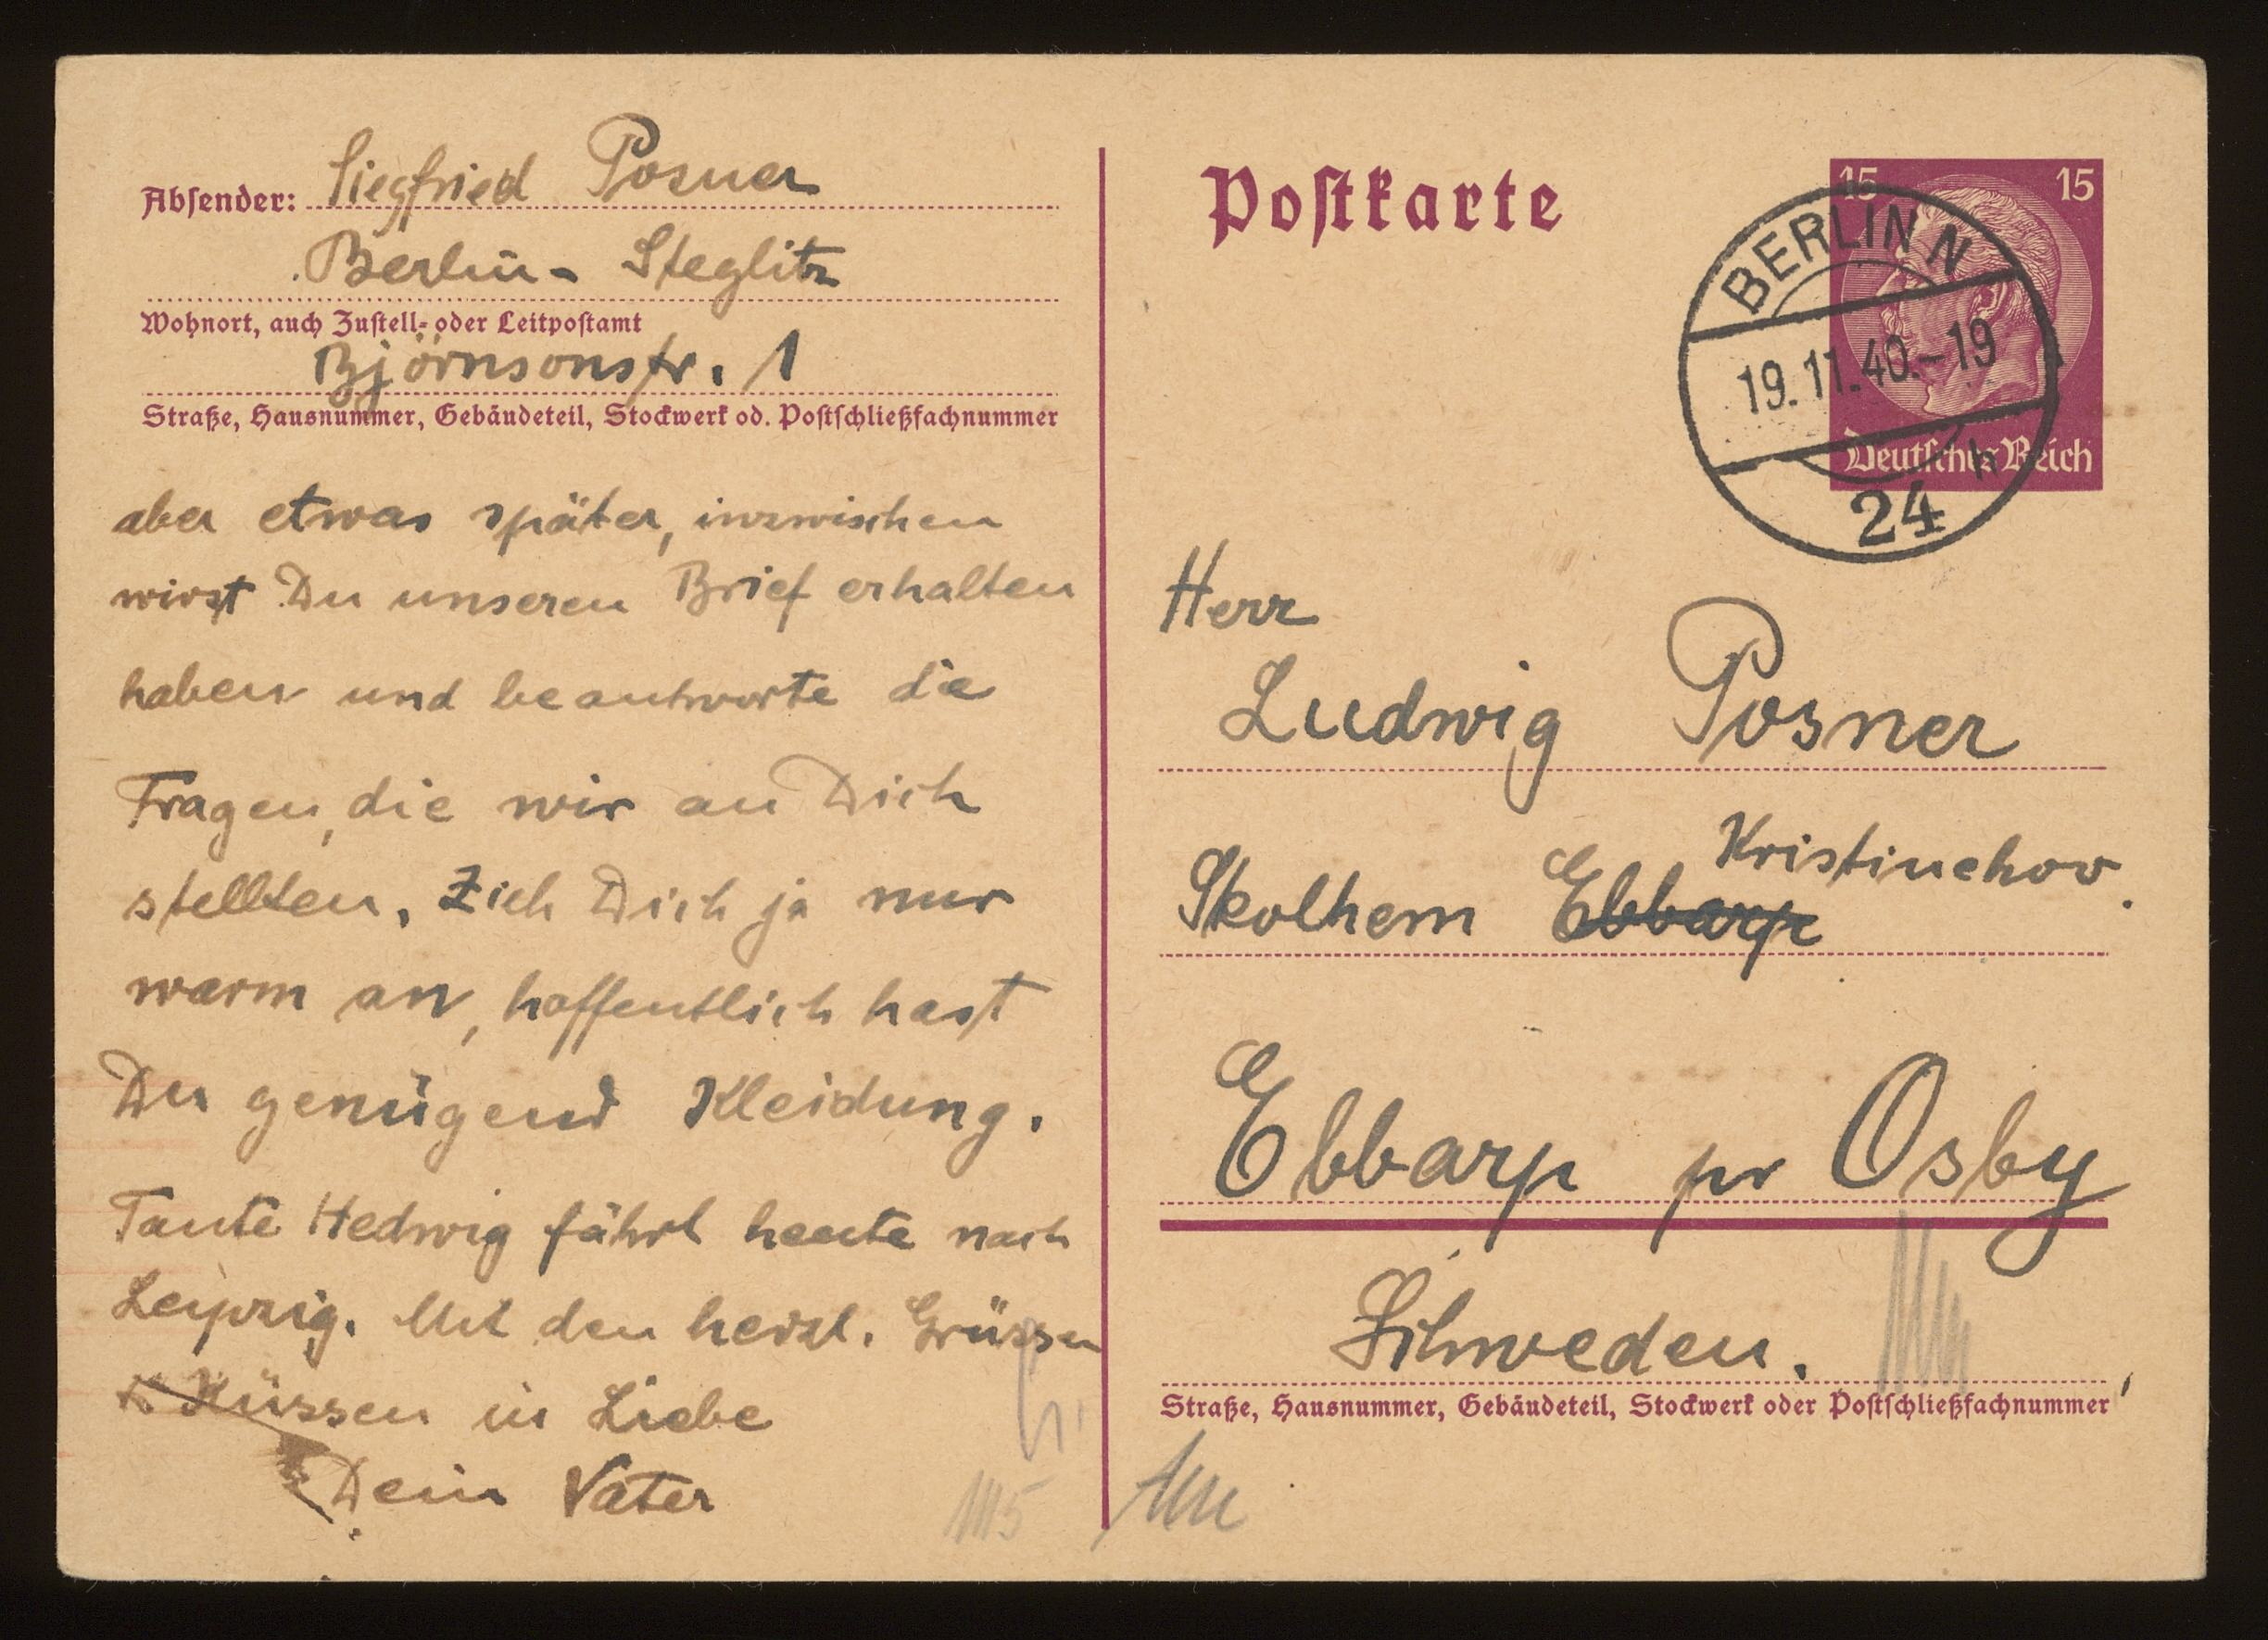 Absender: Siegfried Posner
Berlin-Steglitz
Wohnort, auch Zustell- oder Leitpostamt
Björnsonstr. 1
Straße, Hausnummer, Gebäudeteil, Stockwerk od. Postschließfachnummer
aber etwas später, inzwischen
wirst Du unseren Brief erhalten
haben und beantworte die
Fragen, die wir an Dich
stellten. Zieh Dich ja nur
warm an, hoffentlich hast
Du genügend Kleidung.
Tante Hedwig fährt heute nach
Leipzig. Mit den herzl. Grüssen
Küssen in Liebe
Dein Vater
1115
Postkarte
15 15
Deutsches Reich
BERLIN N
19.11.40.-19
h
24
Herr
Ludwig Posner
Kristinehov
Skolhem Ebbarp
Ebbarp pr Osby
Schweden.
Straße, Hausnummer, Gebäudeteil, Stockwerk oder Postschließfachnummer